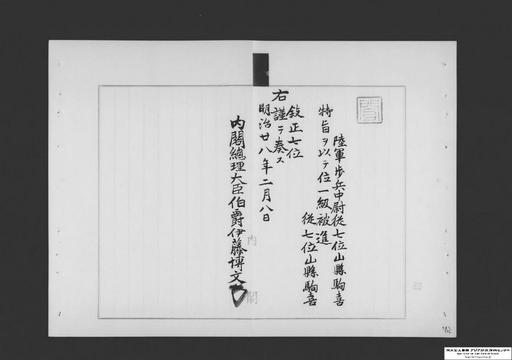 陸軍歩兵中尉従七位山縣駒喜
特旨ヲ以テ位一級被進
従七位山縣駒喜
敍正七位
右謹テ奏ス
明治廿八年二月八日
内閣總理大臣伯爵伊藤博文
内閣